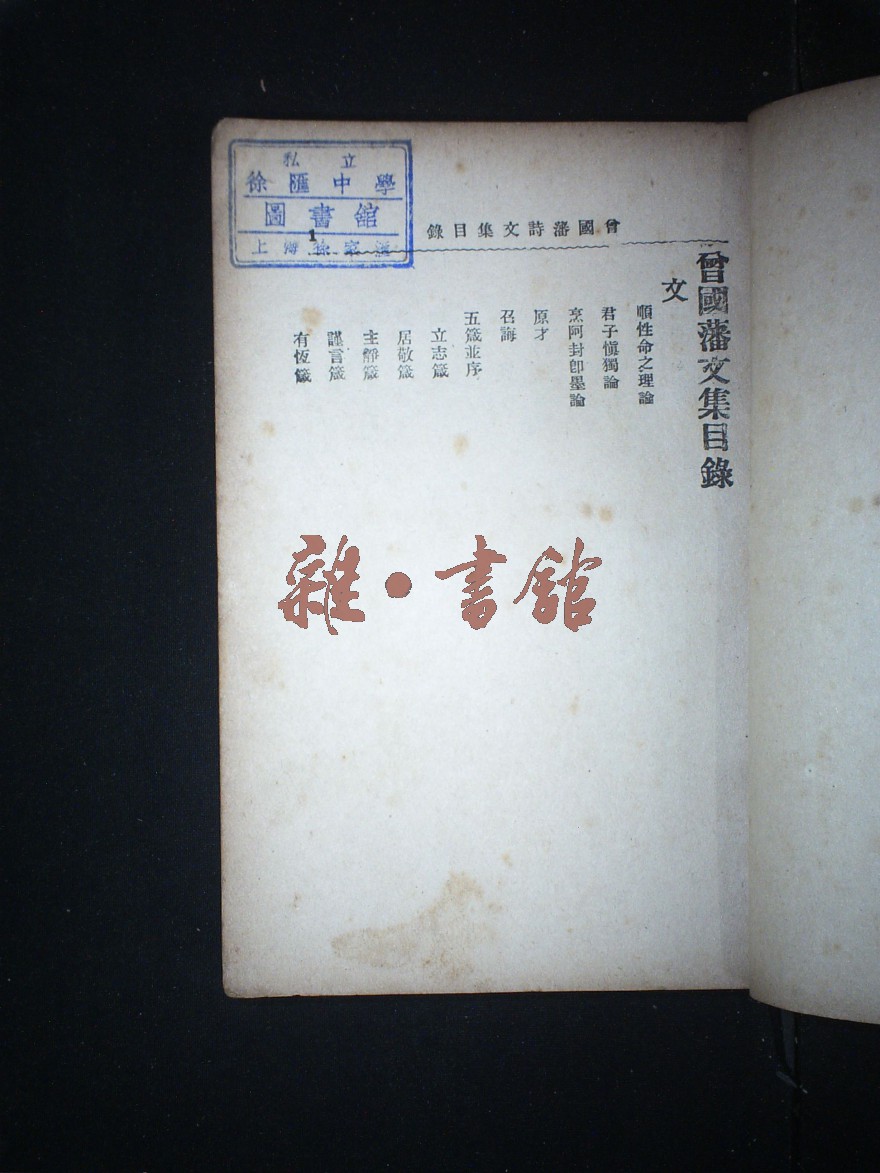 私立
徐匯中學
圖書舘
上海徐家滙
曾國藩詩文集目錄
1
曾國藩文集目錄
文
順性命之理論
君子愼獨論
烹阿封卽墨論
原才
召誨
五箴並序
立志箴
居敬箴
主靜箴
謹言箴
有恆箴
雜·書舘